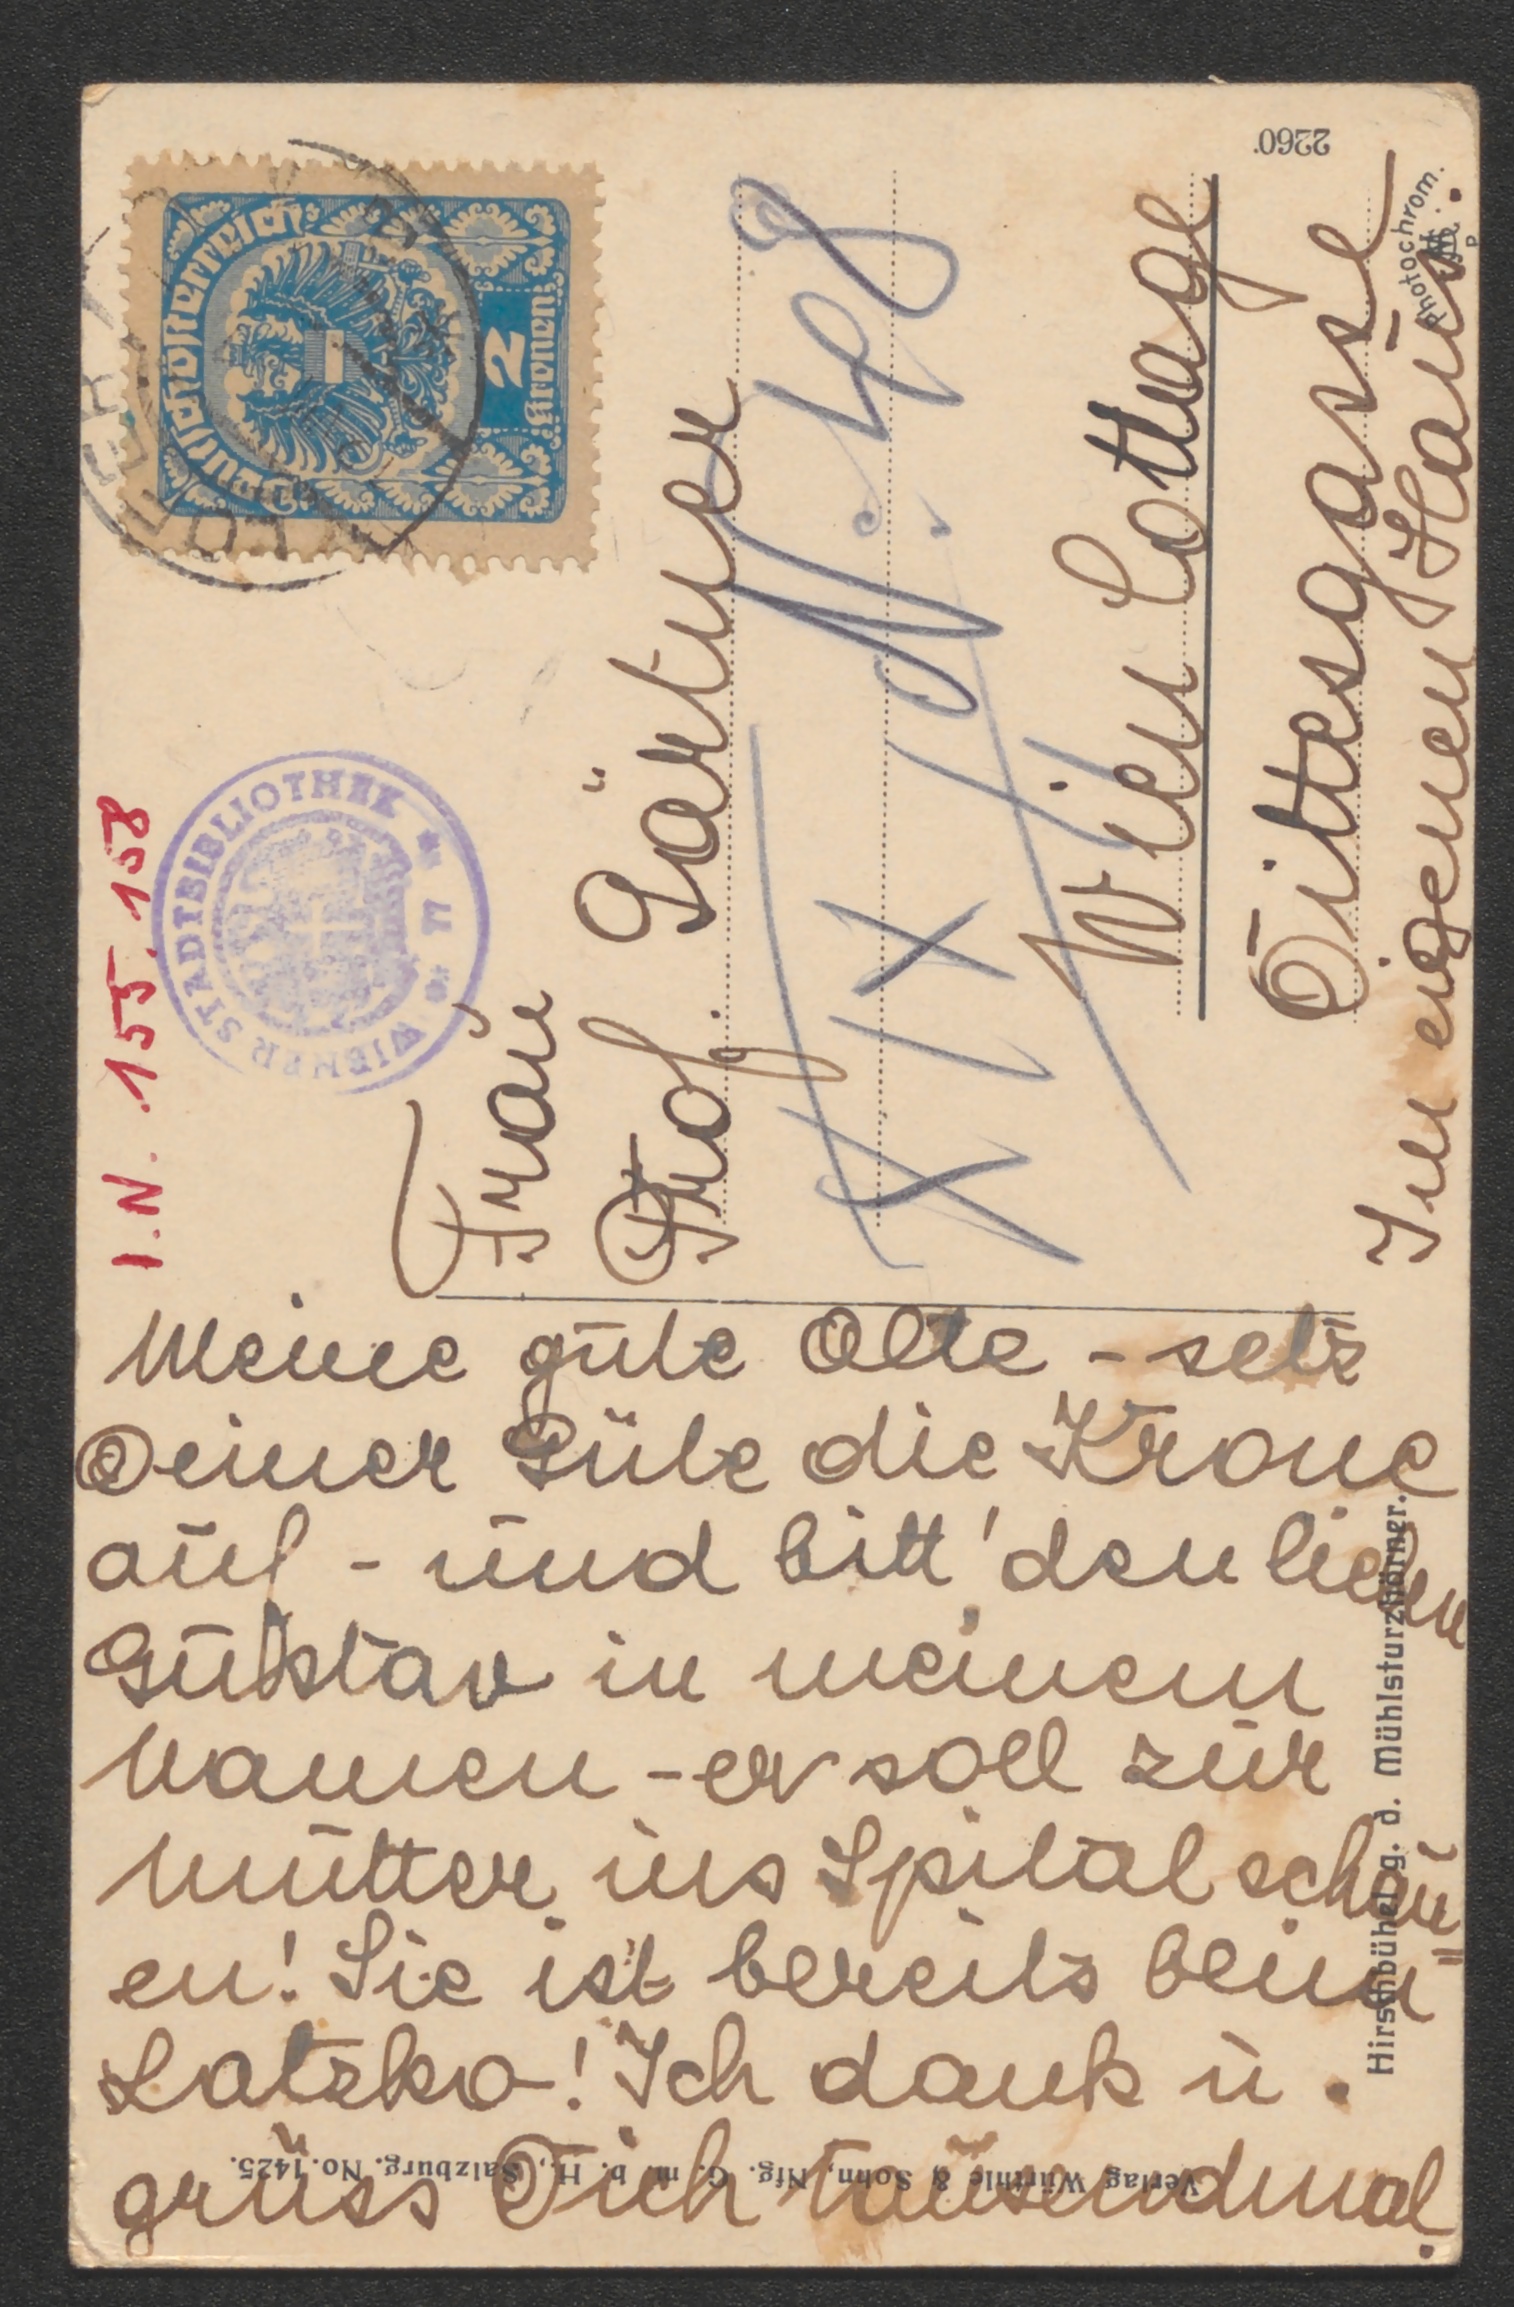 Meine gute Alte - setz
Deiner Güte die Krone
auf - und bitt' den lieben
Gustav in meinem
Namen - er soll zur
Mutter ins Spital schau=
en! Sie ist bereits beim
Latzko! Ich dank u.
grüss Dich tausendmal.
Frau
Prof. Gärtner
XIX
N. 48
Wien Cottage
Dittesgasse
Im eigenen Haus.
I.N. 155.158
WIENER STADTBIBLIOTHEK
Deutschösterreich
2
Kronen
2260.
Photochrom.
Hirschbühel g. d. Mühlsturzhörner.
Verlag Würthle & Sohn, Nfg. G. m. b. H., Salzburg. No. 1425.